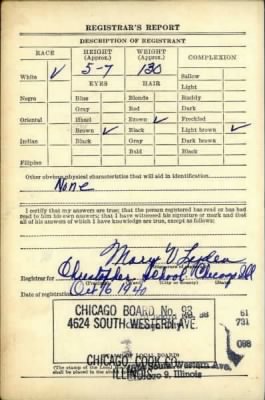 REGISTRAR'S REPORT
DESCRIPTION OF REGISTRANT
RACE HEIGHT (Approx.) WEIGHT (Approx.) COMPLEXION
5-7 130
White ✓ EYES HAIR Sallow
Light
Negro Blue Blonde Ruddy
Gray Red Dark
Oriental Hazel Brown ✓ Freckled
Brown ✓ Black Light brown ✓
Indian Black Gray Dark brown
Bald Black
Filipino
Other obvious physical characteristics that will aid in identification
None
I certify that my answers are true; that the person registered has read or has had
read to him his own answers; that I have witnessed his signature or mark and that
all of his answers of which I have knowledge are true, except as follows:
Mary V
Registrar for Christopher School Chicago Ill
(City or County)
Date of registration Oct 16 1940
CHICAGO BOARD No. 93
4624 SOUTH WESTERN AVE.
61
731
098
CHICAGO COOK CO.
ILLINOIS
Western Ave.
9, Illinois
(The stamp of the Local
shall be placed in the